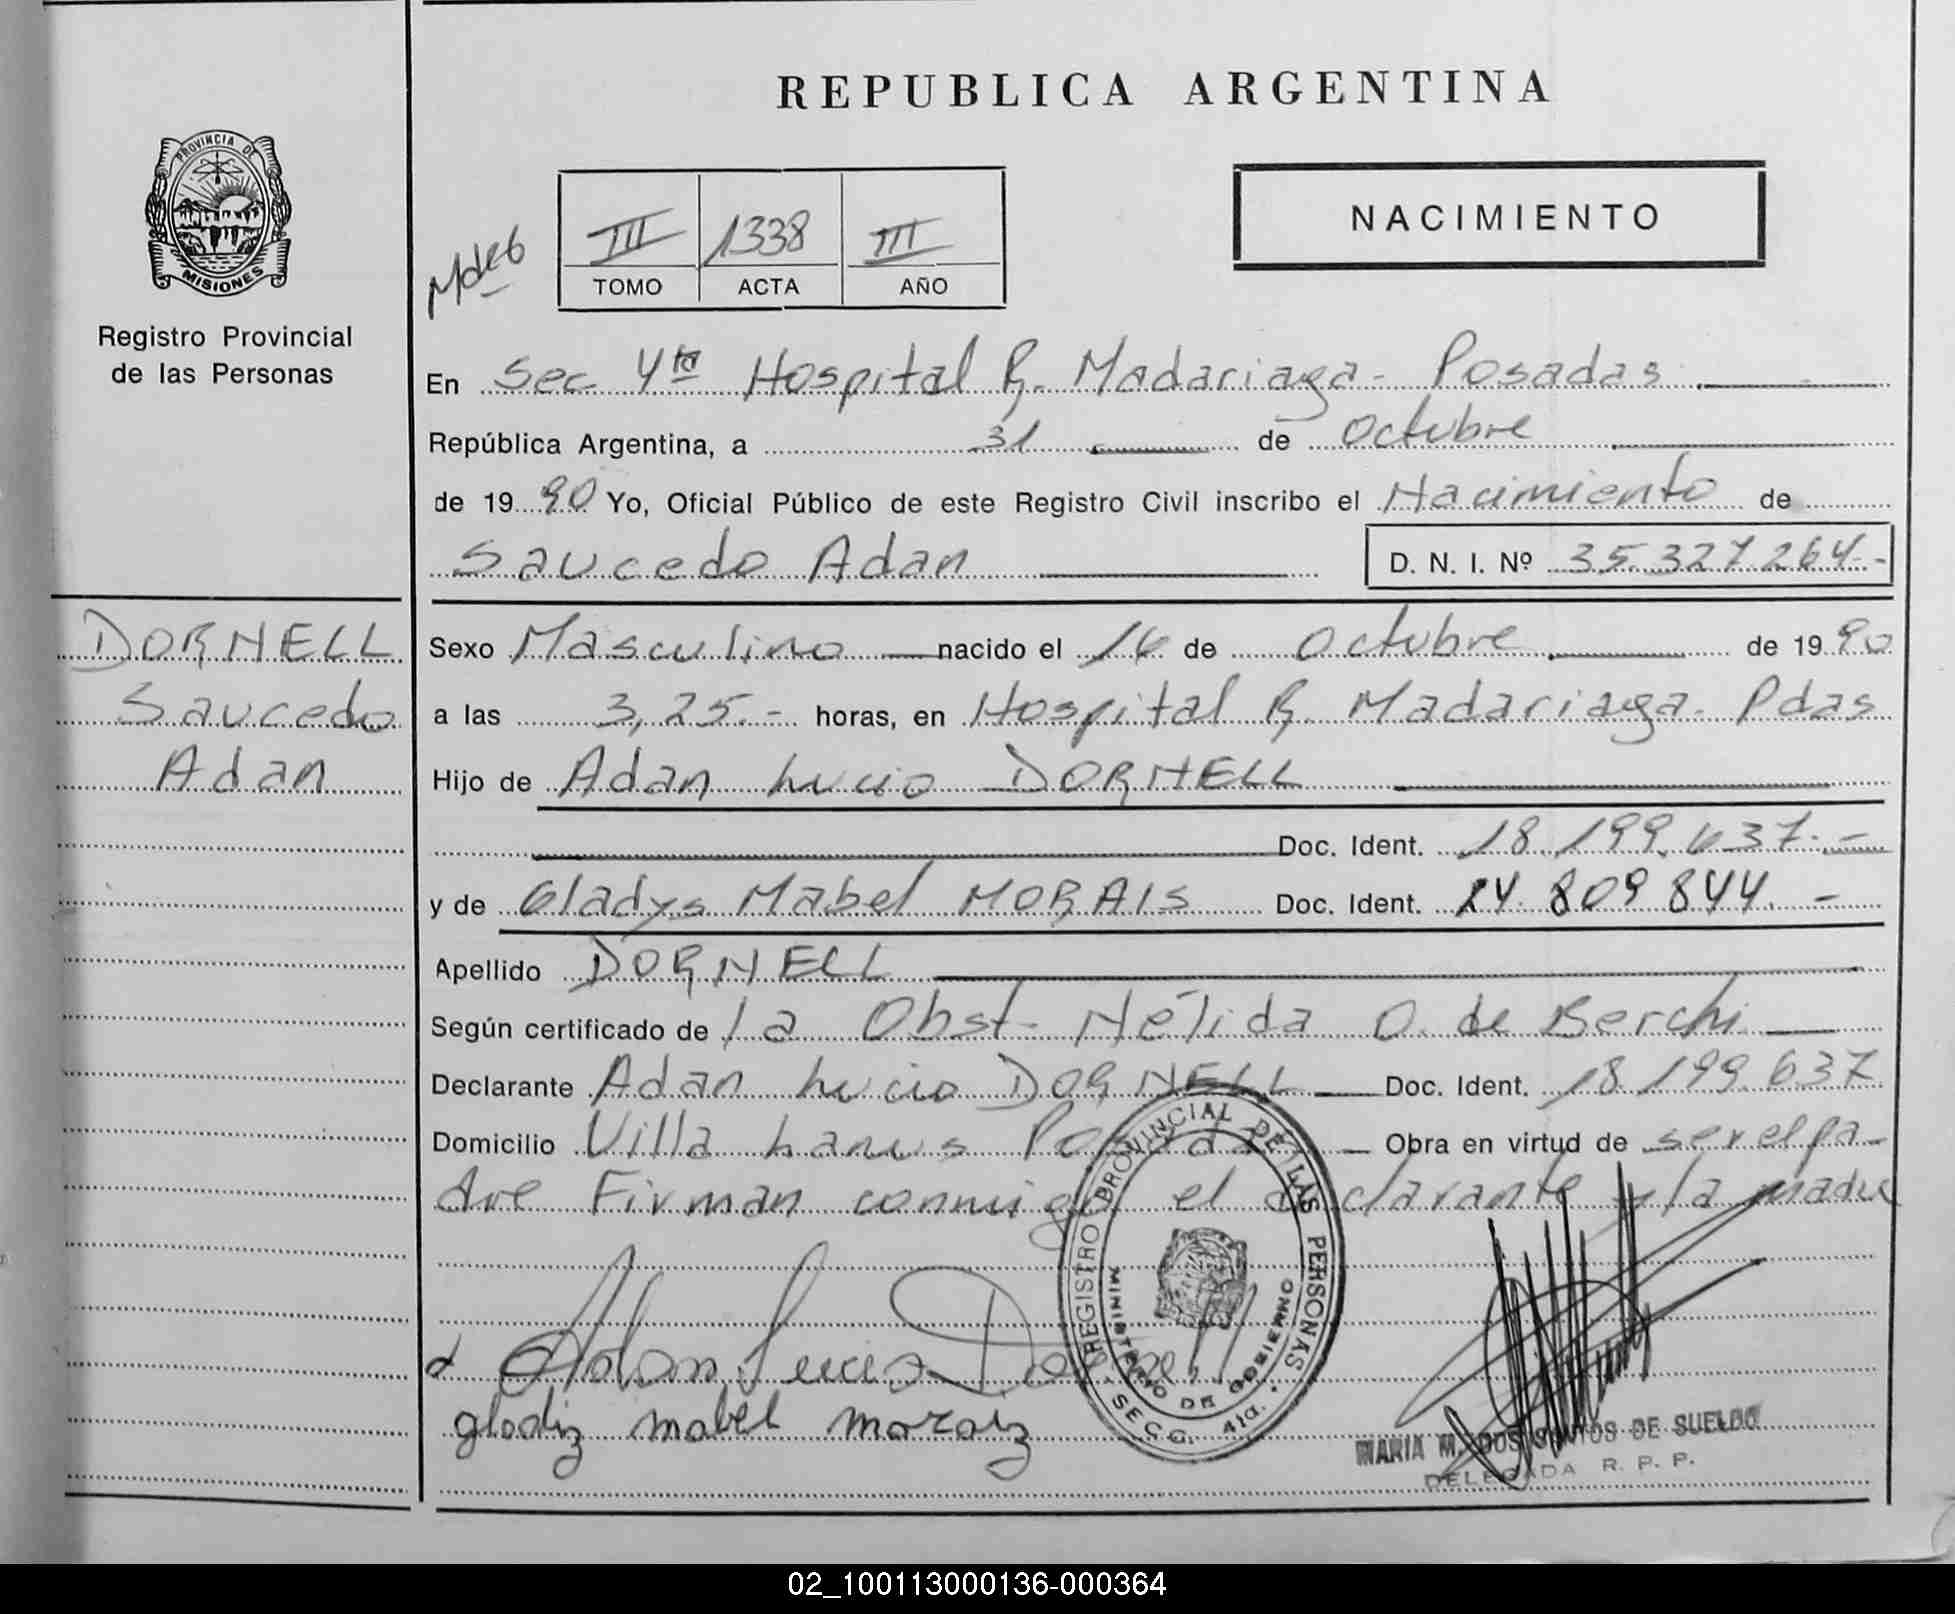 REPUBLICA ARGENTINA
PROVINCIA DE
MISIONES
Registro Provincial
de las Personas
NACIMIENTO
III 1338 III
TOMO ACTA AÑO
En Sec 4ta Hospital R. Madariaga - Posadas
República Argentina, a 31 de Octubre
de 1990 Yo, Oficial Público de este Registro Civil inscribo el Nacimiento de
Saucedo Adan D. N. I. Nº 35.327.264.-
DORNELL
Saucedo
Adan
Sexo Masculino nacido el 16 de Octubre de 1990
a las 3,25.- horas, en Hospital R. Madariaga - Pdas
Hijo de Adan Lucio DORNELL
Doc. Ident. 18.199.637.-
y de Gladys Mabel MORAIS Doc. Ident. 24.809.844.-
Apellido DORNELL
Según certificado de la Obst. Nélida O. de Berchi
Declarante Adan Lucio DORNELL Doc. Ident. 18.199.637
Domicilio Villa Lanus Posadas Obra en virtud de ser el pa-
dre Firman conmigo el declarante y la madre
Adan Lucio Dornell
gladiz mabel moraiz
REGISTRO PROVINCIAL DE LAS PERSONAS
MINISTERIO DE GOBIERNO
SECC. 4ta.
MARIA M. DOS SANTOS DE SUELDO
DELEGADA R. P. P.
02_100113000136-000364